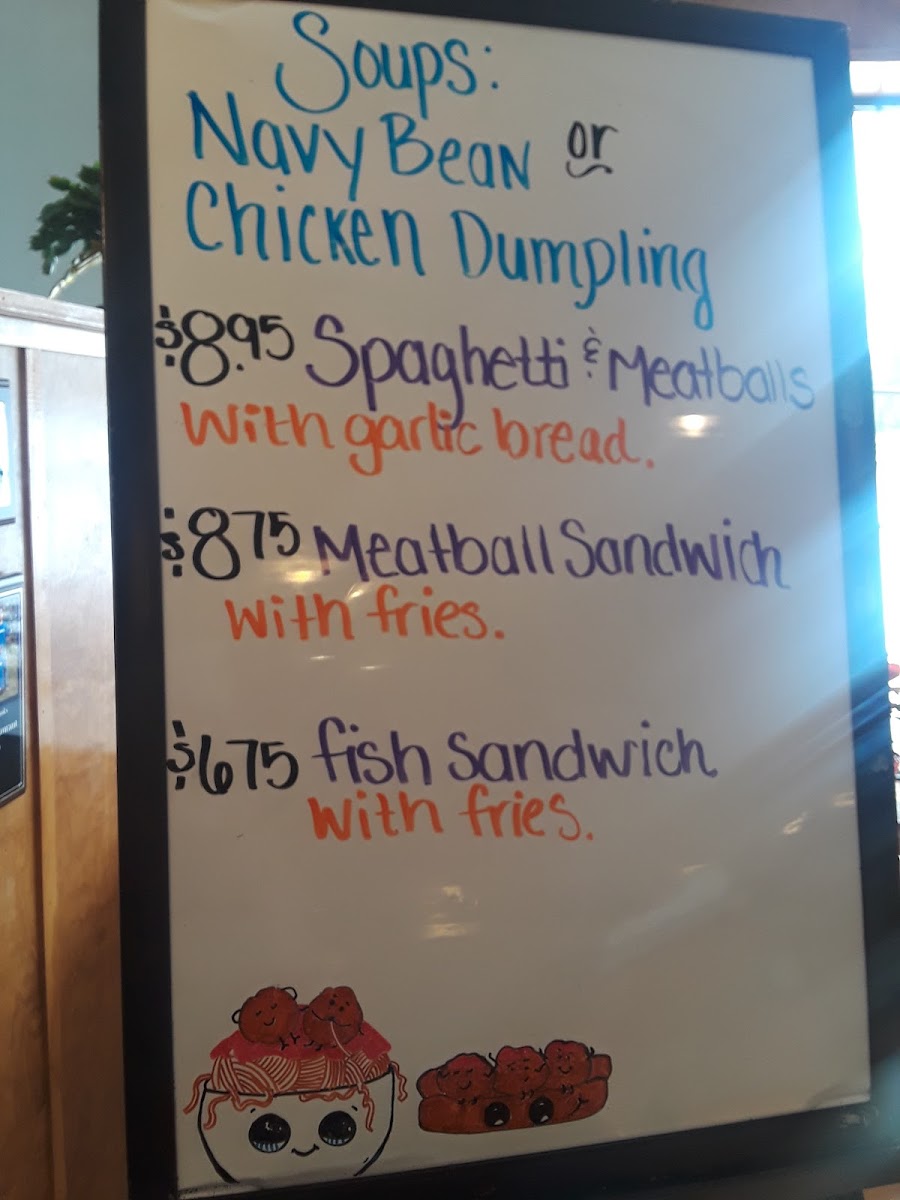 Soups:
Navy Bean or
Chicken Dumpling
$8.95 Spaghetti & Meatballs
with garlic bread.
$875 Meatball Sandwich
with fries.
$675 fish sandwich
with fries.